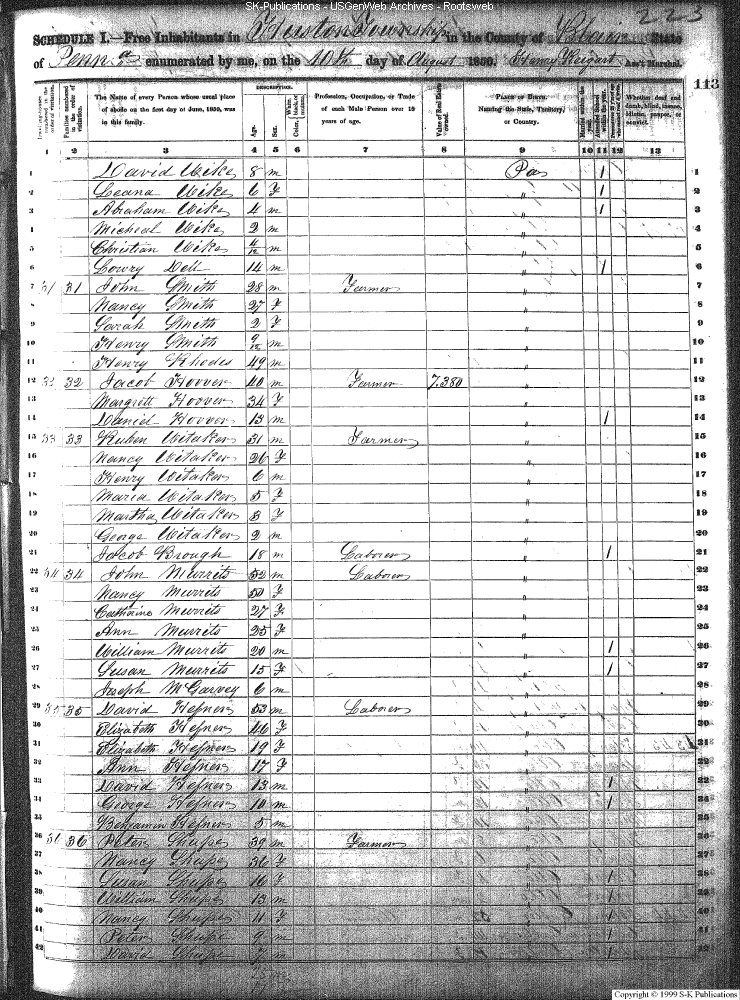 SK-Publications - USGenWeb Archives - Rootsweb
223
SCHEDULE I.—Free Inhabitants in Huston Township in the County of Blair State
of Penna enumerated by me, on the 10th day of August 1850. Henry Ass't Marshal.
113
DESCRIPTION.
Dwelling-houses numbered in the order of visitation.
Families numbered in the order of visitation.
The Name of every Person whose usual place of abode on the first day of June, 1850, was in this family.
Age.
Sex.
Color,
Profession, Occupation, or Trade of each Male Person over 15 years of age.
Value of Real Estate owned.
PLACE OF BIRTH. Naming the State, Territory, or Country.
Married within the year.
Attended School within the year.
Whether deaf and dumb, blind, insane, idiotic, pauper, or convict.
1 2 3 4 5 6 7 8 9 10 11 12 13
1 David Wike 8 m Pa / 1
2 Leana Wike 6 F " / 2
3 Abraham Wike 4 m " / 3
4 Micheal Wike 2 m " 4
5 Christian Wike 4/12 m " 5
6 Lowry Dell 14 m " / 6
7 31 31 John Smith 28 m Farmer " 7
8 Nancy Smith 27 F " 8
9 Sarah Smith 2 F " 9
10 Henry Smith 9/12 m " 10
11 Henry Rhodes 49 m " 11
12 32 32 Jacob Hoover 40 m Farmer 7.380 " 12
13 Margrett Hoover 34 F " 13
14 Daniel Hoover 13 m " / 14
15 33 33 Ruben Witaker 31 m Farmer " 15
16 Nancy Witaker 26 F " 16
17 Henry Witaker 6 m " 17
18 Maria Witaker 5 F " 18
19 Martha Witaker 3 F " 19
20 George Witaker 2 m " 20
21 Jacob Brough 18 m Laborer " / 21
22 34 34 John Murrits 52 m Laborer " 22
23 Nancy Murrits 50 F " 23
24 Catharine Murrits 27 F " 24
25 Ann Murrits 25 F " 25
26 William Murrits 20 m " / 26
27 Susan Murrits 15 F " / 27
28 Joseph McGarvey 6 m " 28
29 35 35 David Hefner 53 m Laborer " 29
30 Elizabeth Hefner 46 F " 30
31 Elizabeth Hefner 19 F " 31
32 Ann Hefner 17 F " 32
33 David Hefner 13 m " / 33
34 George Hefner 10 m " / 34
35 Benjamin Hefner 5 m " 35
36 36 36 Peter Shupe 39 m Farmer " 36
37 Nancy Shupe 36 F " 37
38 Susan Shupe 16 F " / 38
39 William Shupe 13 m " / 39
40 Nancy Shupe 11 F " / 40
41 Peter Shupe 9 m " / 41
42 David Shupe 7 m " / 42
Copyright © 1999 S-K Publications